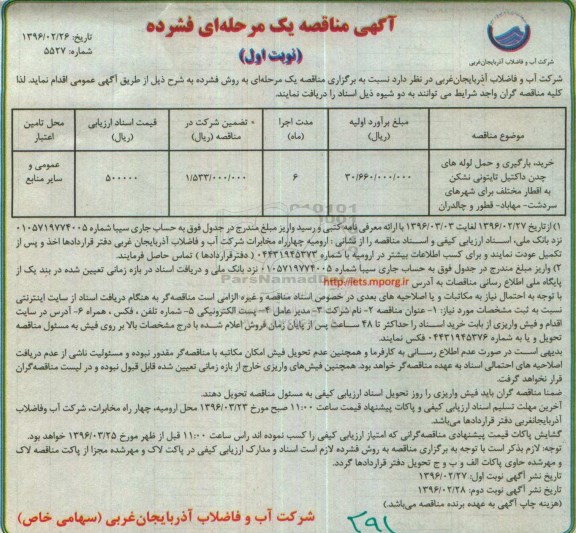 آگهی مناقصه یک مرحله‌ای فشرده
(نوبت اول)
تاریخ: ۱۳۹۶/۰۲/۲۶
شماره: ۵۵۲۷
شرکت آب و فاضلاب آذربایجان‌غربی
شرکت آب و فاضلاب آذربایجان‌غربی در نظر دارد نسبت به برگزاری مناقصه یک مرحله‌ای به روش فشرده به شرح ذیل از طریق آگهی عمومی اقدام نماید. لذا
کلیه مناقصه گران واجد شرایط می توانند به دو شیوه ذیل اسناد را دریافت نمایند.
موضوع مناقصه
مبلغ برآورد اولیه (ریال)
مدت اجرا (ماه)
تضمین شرکت در مناقصه (ریال)
قیمت اسناد ارزیابی (ریال)
محل تامین اعتبار
خرید، بارگیری و حمل لوله های
چدن داکتیل تایتونی نشکن
به اقطار مختلف برای شهرهای
سردشت- مهاباد- قطور و چالدران
۳۰/۶۶۰/۰۰۰/۰۰۰
۶
۱/۵۳۳/۰۰۰/۰۰۰
۵۰۰۰۰۰
عمومی و سایر منابع
۱) از تاریخ ۱۳۹۶/۰۲/۲۷ لغایت ۱۳۹۶/۰۳/۰۳ با ارائه معرفی نامه کتبی و رسید واریز مبلغ مندرج در جدول فوق به حساب جاری سیبا شماره ۰۱۰۵۷۱۹۷۷۴۰۰۵
نزد بانک ملی، اسناد ارزیابی کیفی و اسناد مناقصه را از نشانی : ارومیه چهارراه مخابرات شرکت آب و فاضلاب آذربایجان غربی دفتر قراردادها اخذ و پس از
تکمیل عودت نمایند و برای کسب اطلاعات بیشتر در ارومیه با شماره ۰۴۴۳۱۹۴۵۳۷۳ ( دفترقراردادها ) تماس حاصل فرمایند.
۲) واریز مبلغ مندرج در جدول فوق به حساب جاری سیبا شماره ۰۱۰۵۷۱۹۷۷۴۰۰۵ نزد بانک ملی و دریافت اسناد در بازه زمانی تعیین شده در بند یک از
پایگاه ملی اطلاع رسانی مناقصات به آدرس http://iets.mporg.ir
با توجه به احتمال نیاز به مکاتبات و یا اصلاحیه های بعدی در خصوص اسناد مناقصه و غیره الزامی است مناقصه‌گر به هنگام دریافت اسناد از سایت اینترنتی
نسبت به ثبت مشخصات مورد نیاز: ۱- عنوان مناقصه ۲- نام شرکت ۳- مدیر عامل ۴- پست الکترونیکی ۵- شماره تلفن ، فکس ، همراه ۶- آدرس در سایت
اقدام و فیش واریزی از بابت خرید اسناد را حداکثر تا ۴۸ ساعت پس از پایان زمان فروش اعلام شده با درج مشخصات بالا بر روی فیش به مسئول مناقصه
تحویل و یا به شماره ۰۴۴۳۱۹۴۵۳۷۶ فکس نمایند.
بدیهی است در صورت عدم اطلاع رسانی به کارفرما و همچنین عدم تحویل فیش امکان مکاتبه با مناقصه‌گر مقدور نبوده و مسئولیت ناشی از عدم دریافت
اصلاحیه های احتمالی اسناد به عهده مناقصه‌گر خواهد بود. همچنین فیش‌های واریزی خارج از بازه زمانی تعیین شده قابل قبول نبوده و در لیست مناقصه‌گران
قرار نخواهد گرفت.
ضمنا مناقصه گران باید فیش واریزی را روز تحویل اسناد ارزیابی کیفی به مسئول مناقصه تحویل دهند.
آخرین مهلت تسلیم اسناد ارزیابی کیفی و پاکات پیشنهاد قیمت ساعت ۱۱:۰۰ صبح مورخ ۱۳۹۶/۰۳/۲۳ محل ارومیه، چهار راه مخابرات، شرکت آب وفاضلاب
آذربایجانغربی دفتر قراردادها می‌باشد.
گشایش پاکات قیمت پیشنهادی مناقصه‌گرانی که امتیاز ارزیابی کیفی را کسب نموده اند راس ساعت ۱۱:۰۰ قبل از ظهر مورخ ۱۳۹۶/۰۳/۲۵ خواهد بود.
توجه: لازم بذکر است با توجه به برگزاری مناقصه به روش فشرده لازم است اسناد و مدارک ارزیابی کیفی در پاکت لاک و مهرشده مجزا از پاکت مناقصه لاک
و مهرشده حاوی پاکات الف و ب و ج تحویل دفتر قراردادها گردد.
تاریخ نشر آگهی نوبت اول: ۱۳۹۶/۰۲/۲۷
تاریخ نشر آگهی نوبت دوم: ۱۳۹۶/۰۲/۲۸
(هزینه چاپ آگهی به عهده برنده مناقصه می‌باشد.)
شرکت آب و فاضلاب آذربایجان‌غربی (سهامی خاص)
۲۹۱